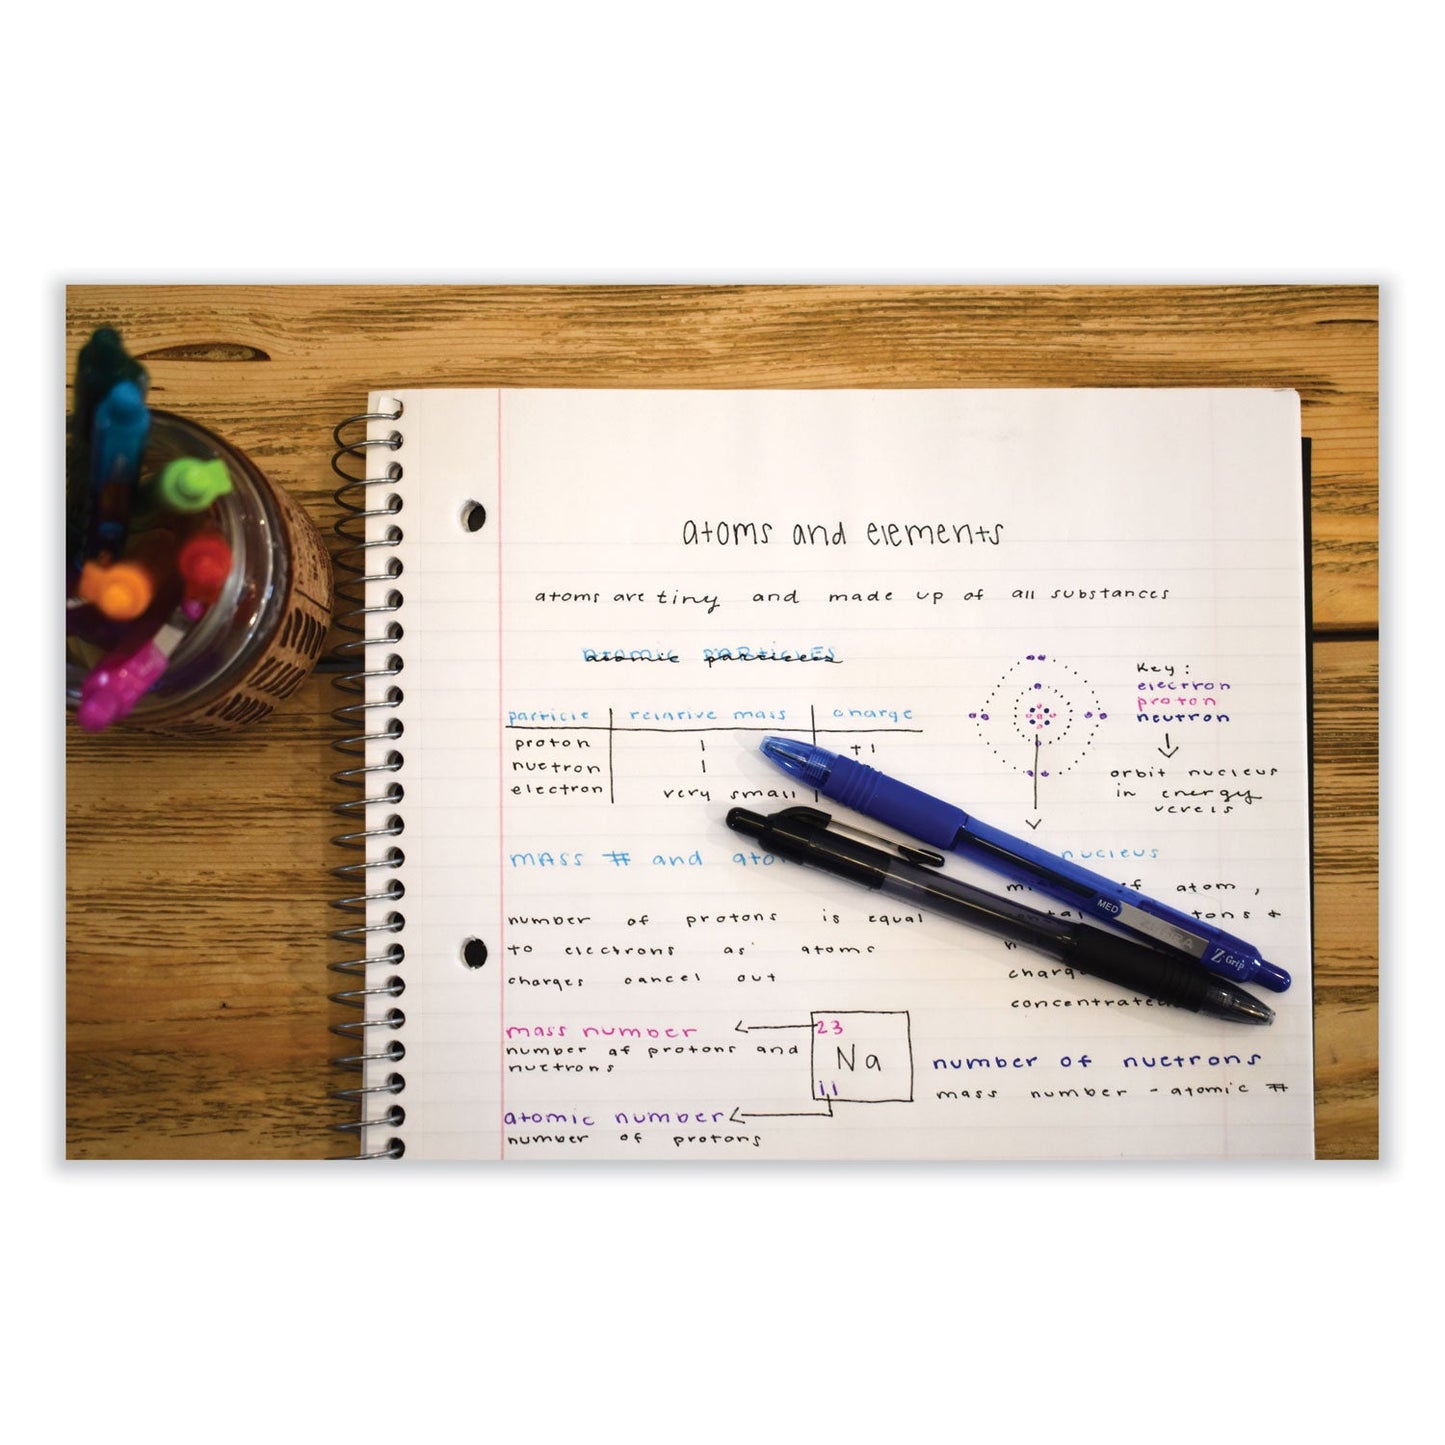 atoms and elements
atoms are tiny and made up of all substances
atomic particles
particle relative mass charge
proton 1 +1
nuetron 1
electron very small
Key:
electron
proton
neutron
orbit nucleus
in energy
MASS # and
number of protons is equal
to electrons as atoms
charges cancel out
nucleus
of atom,
MED
ZEBRA
Z-Grip
mass number
number of protons and
nuetrons
23
Na
11
atomic number
number of protons
number of nuetrons
mass number - atomic #